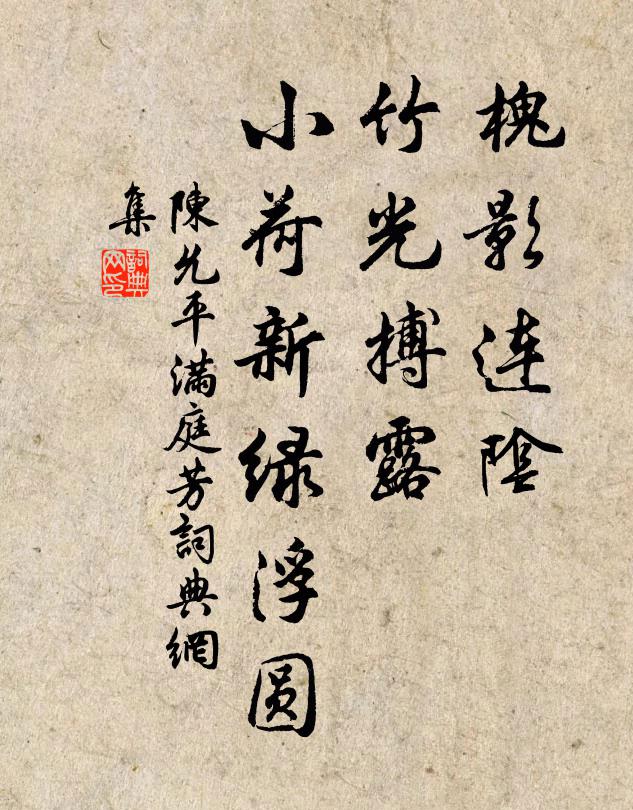 槐影连陰
竹光搏露
小荷新绿浮圆
陳允平满庭芳詞典網
集
詞典
网印